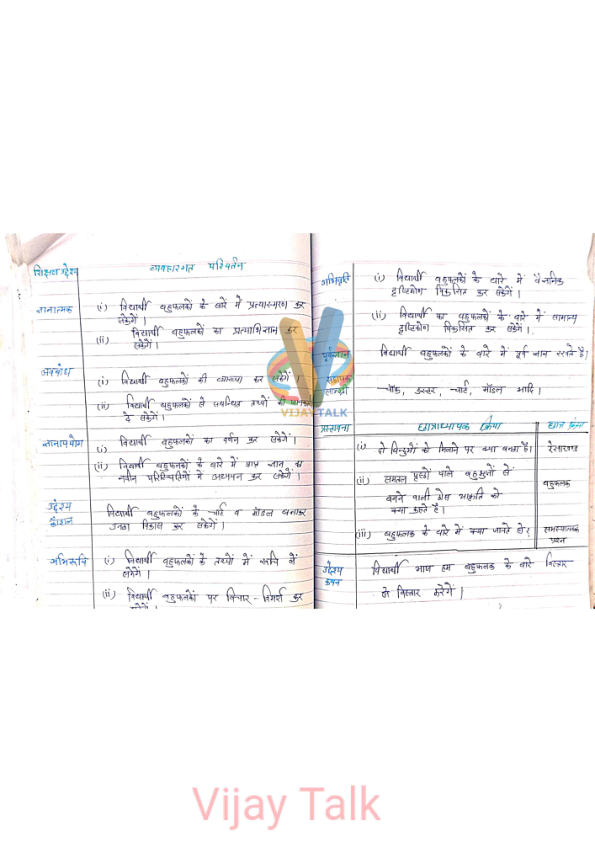 शिक्षण उद्देश्य व्यवहारगत परिवर्तन
ज्ञानात्मक (i) विद्यार्थी बहुफलकों के बारे में प्रत्यास्मरण कर
सकेगें।
(ii) विद्यार्थी बहुफलकों का प्रत्याभिज्ञान कर
सकेगें।
अवबोध
(i) विद्यार्थी बहुफलकों की व्याख्या कर सकेगें।
(ii) विद्यार्थी बहुफलकों से सम्बन्धित तथ्यों की
दे सकेगें।
ज्ञानोपयोग (i) विद्यार्थी बहुफलकों का वर्णन कर सकेगें।
(ii) विद्यार्थी बहुफलकों के बारे में प्राप्त ज्ञान का
नवीन परिस्थितियों में अध्ययन कर सकेगें।
उद्देश्य
कौशल विद्यार्थी बहुफलकों के चार्ट व मॉडल बनाकर
उनका विकास कर सकेगें।
अभिरूचि (i) विद्यार्थी बहुफलकों के तथ्यों में रूचि ले
सकेगें।
(ii) विद्यार्थी बहुफलकों पर विचार-विमर्श कर
सकेगें।
अभिवृत्ति (i) विद्यार्थी बहुफलकों के बारे में वैज्ञानिक
दृष्टिकोण विकसित कर सकेगें।
(ii) विद्यार्थी का बहुफलकों के बारे में सामान्य
दृष्टिकोण विकसित कर सकेगें।
पूर्वज्ञान विद्यार्थी बहुफलकों के बारे में पूर्व ज्ञान रखते है।
सहायक
सामग्री चॉक, डस्टर, चार्ट, मॉडल आदि।
प्रस्तावना छात्राध्यापक क्रिया छात्र क्रिया
(i) दो बिन्दुओं को मिलाने पर क्या बनता है। रेखाखण्ड
(ii) समतल पृष्ठों वाले बहुभुजों से
बनने वाली ठोस आकृति को
क्या कहते है। बहुफलक
(iii) बहुफलक के बारे में क्या जानते हो? समस्यात्मक
प्रश्न
उद्देश्य
कथन विद्यार्थी आज हम बहुफलक के बारे विस्तार
से विस्तार करेगें।
VIJAY TALK
Vijay Talk